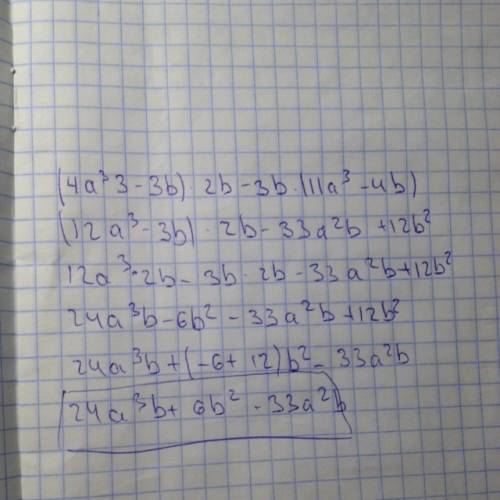 (4a³3 - 3b) 2b - 3b · (11a³ - 4b)
(12a³ - 3b) · 2b - 33a²b + 12b²
12a³ · 2b - 3b · 2b - 33a²b + 12b²
24a³b - 6b² - 33a²b + 12b²
24a³b + (-6 + 12)b² - 33a²b
24a³b + 6b² - 33a²b